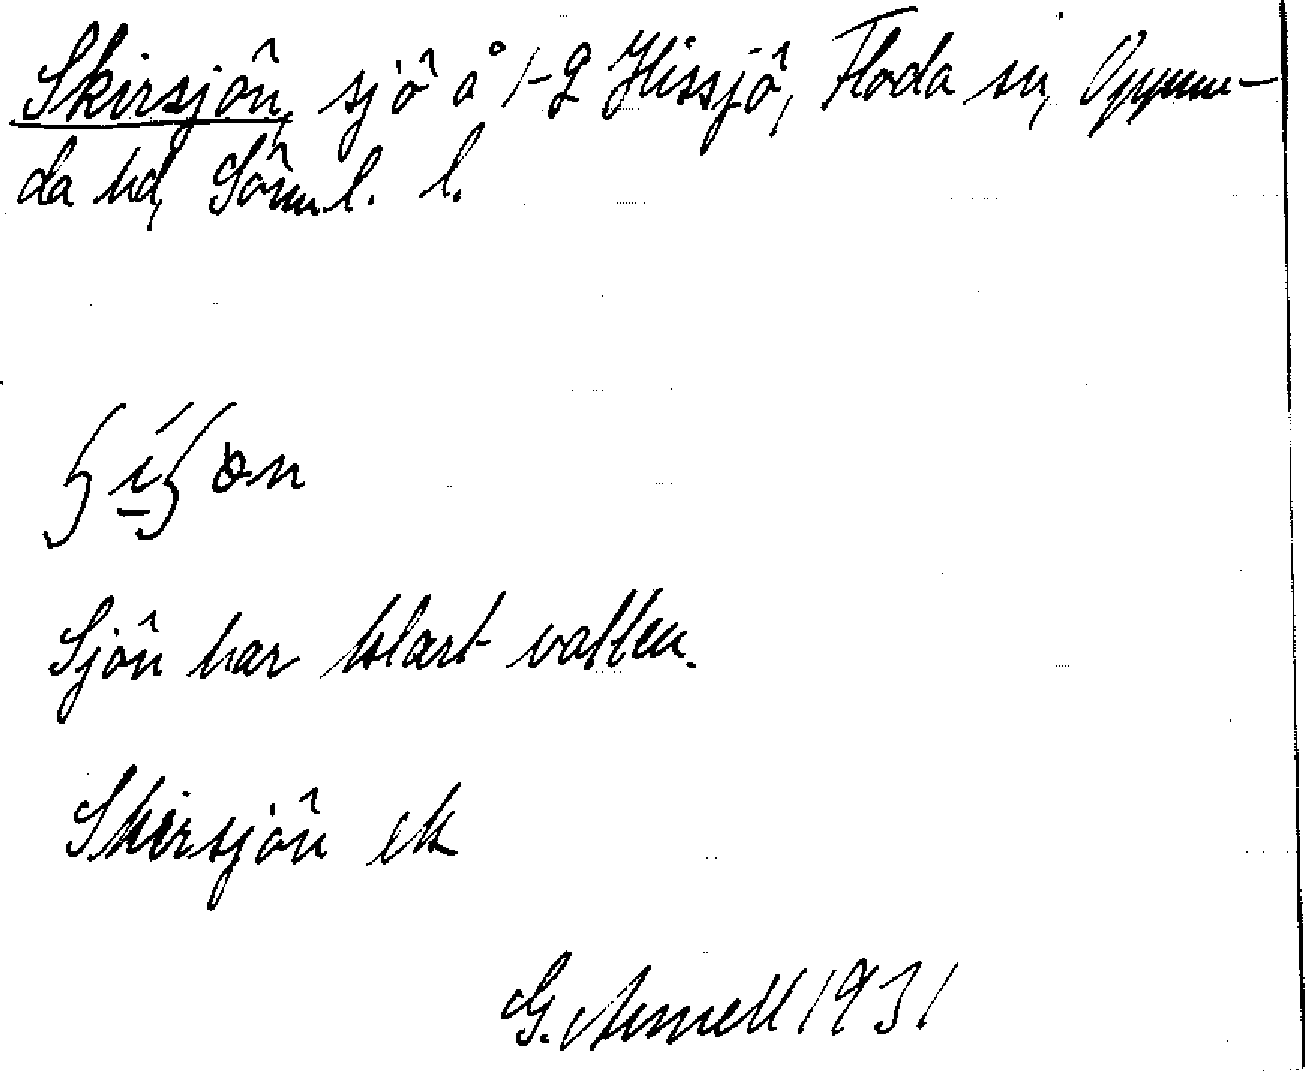 Skirsjön, sjö å 1-2 Hissjö, Floda sn, Oppun-
da hd, Sörml. l.
ʃi̠ʃɵn
Sjön har klart vatten.
Skirsjön ek
G. Arnell 1931